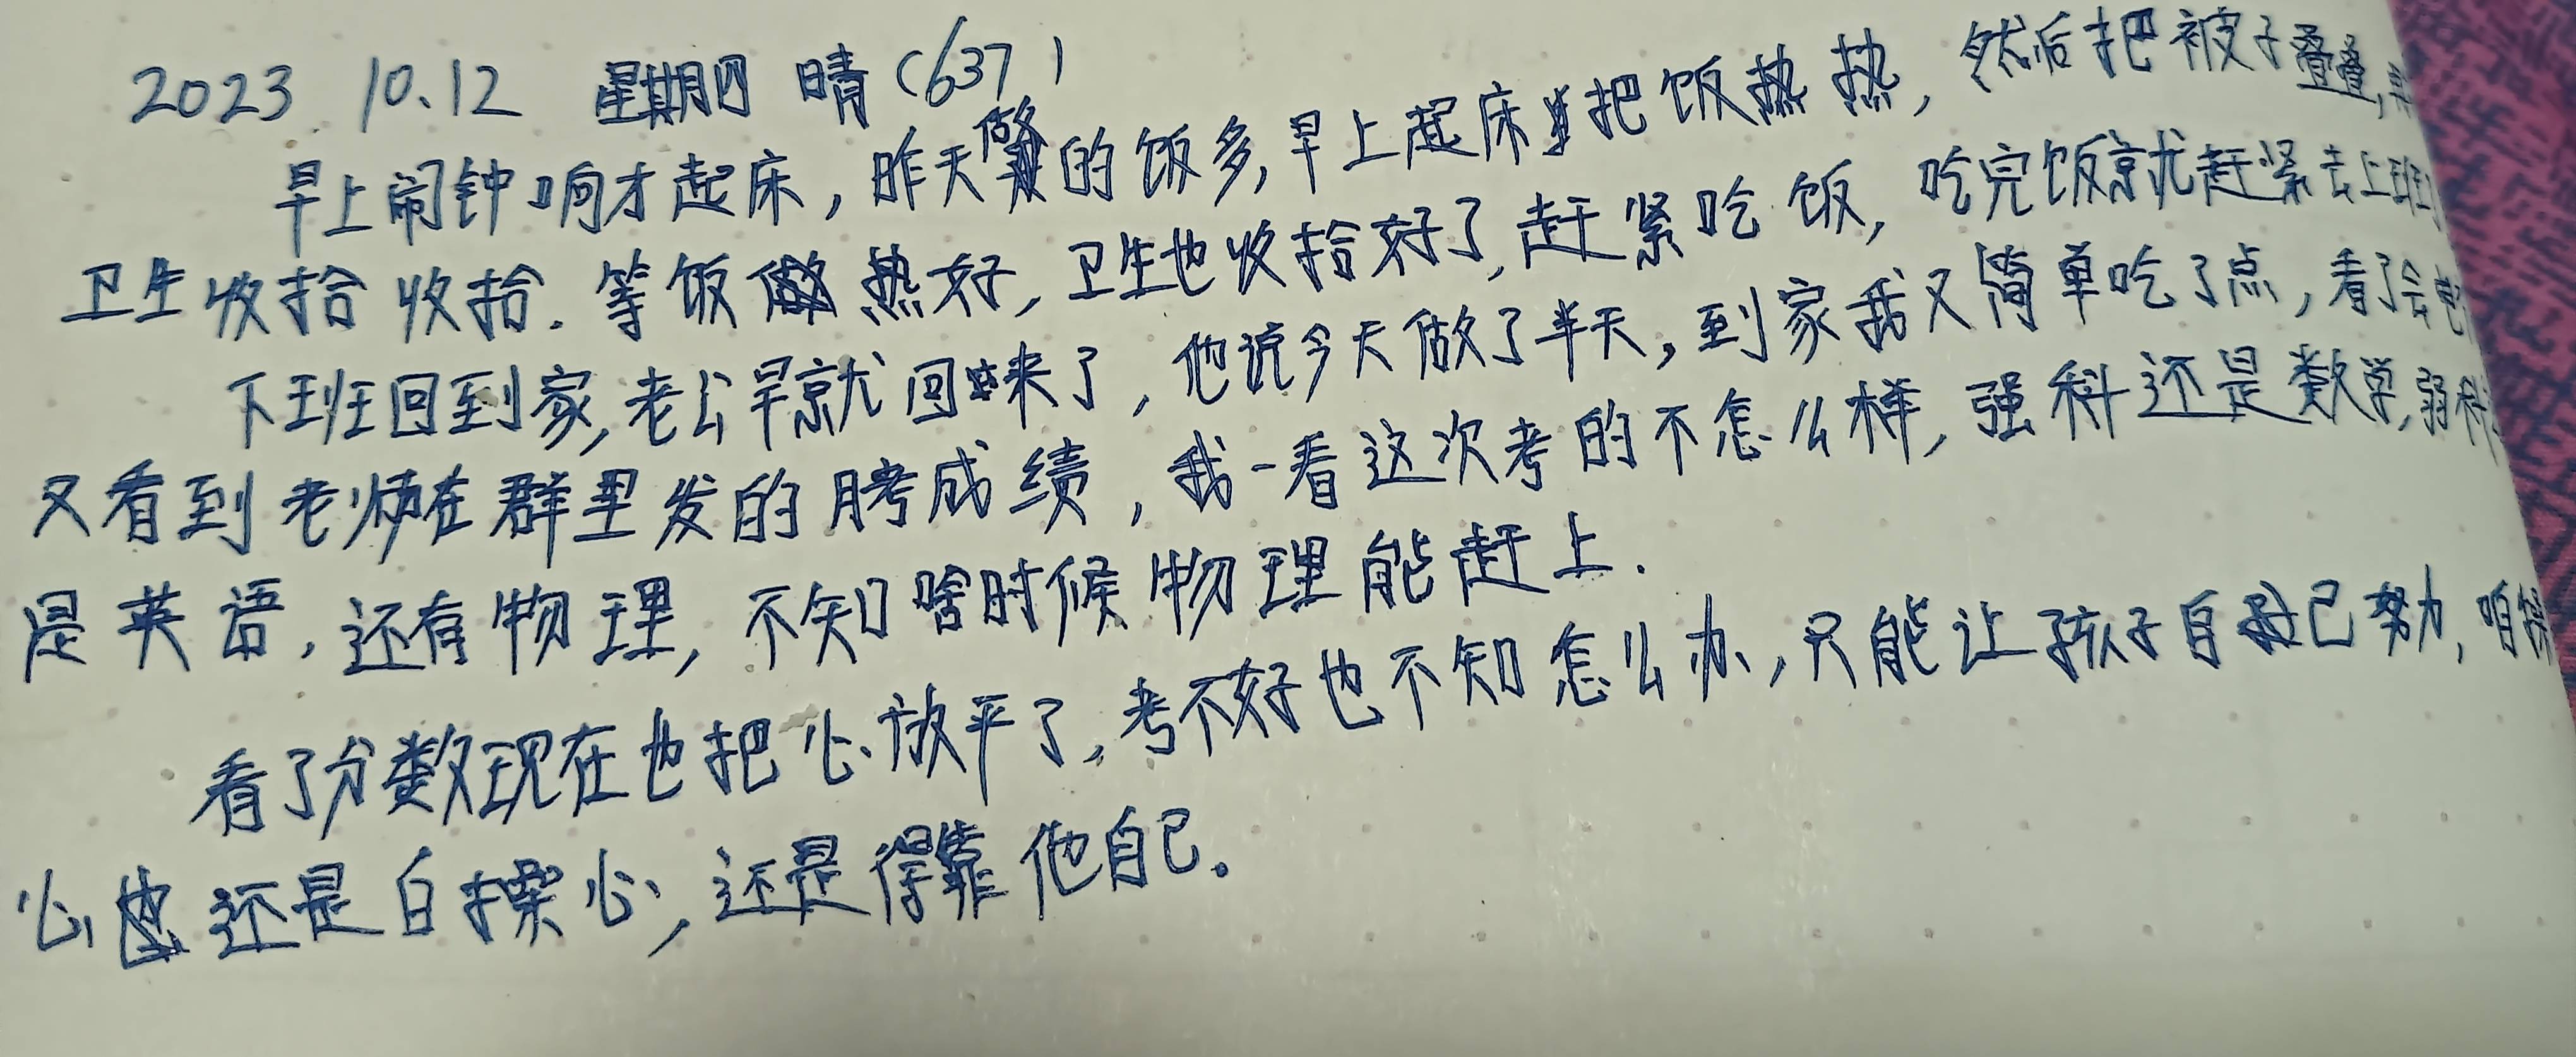 2023 10.12 星期四 晴 (637)
早上闹钟响才起床，昨天做的饭多，早上起床把饭热热，然后把被子叠叠，
卫生收拾收拾。等饭热好，卫生也收拾好了，赶紧吃饭，吃完饭就赶紧去上班
下班回到家，老公早就回来了，他说今天做了半天，到家我又简单吃了点，看了会
又看到老师在群里发的月考成绩，我一看这次考的不怎么样，强科还是数学，弱科
是英语，还有物理，不知啥时候物理能赶上.
看了分数现在也把心放平了，考不好也不知怎么办，只能让孩子自己努力，咱
心还是白操心，还是得靠他自己。